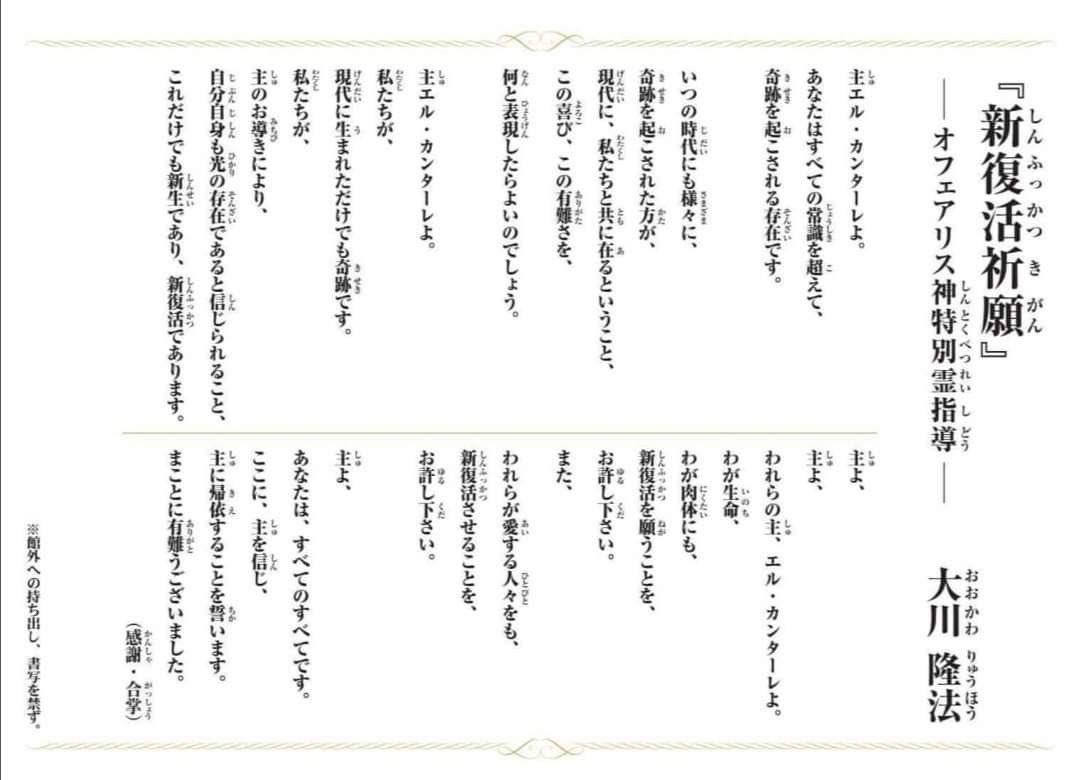 『新復活祈願』
― オフェアリス神特別霊指導 ―
大川 隆法
主エル・カンターレよ。
あなたはすべての常識を超えて、
奇跡を起こされる存在です。
いつの時代にも様々に、
奇跡を起こされた方が、
現代に、私たちと共に在るということ、
この喜び、この有難さを、
何と表現したらよいのでしょう。
主エル・カンターレよ。
私たちが、
現代に生まれただけでも奇跡です。
私たちが、
主のお導きにより、
自分自身も光の存在であると信じられること、
これだけでも新生であり、新復活であります。
主よ、
主よ、
われらの主、エル・カンターレよ。
わが生命、
わが肉体にも、
新復活を願うことを、
お許し下さい。
また、
われらが愛する人々をも、
新復活させることを、
お許し下さい。
主よ、
あなたは、すべてのすべてです。
ここに、主を信じ、
主に帰依することを誓います。
まことに有難うございました。
（感謝・合掌）
※館外への持ち出し、書写を禁ず。